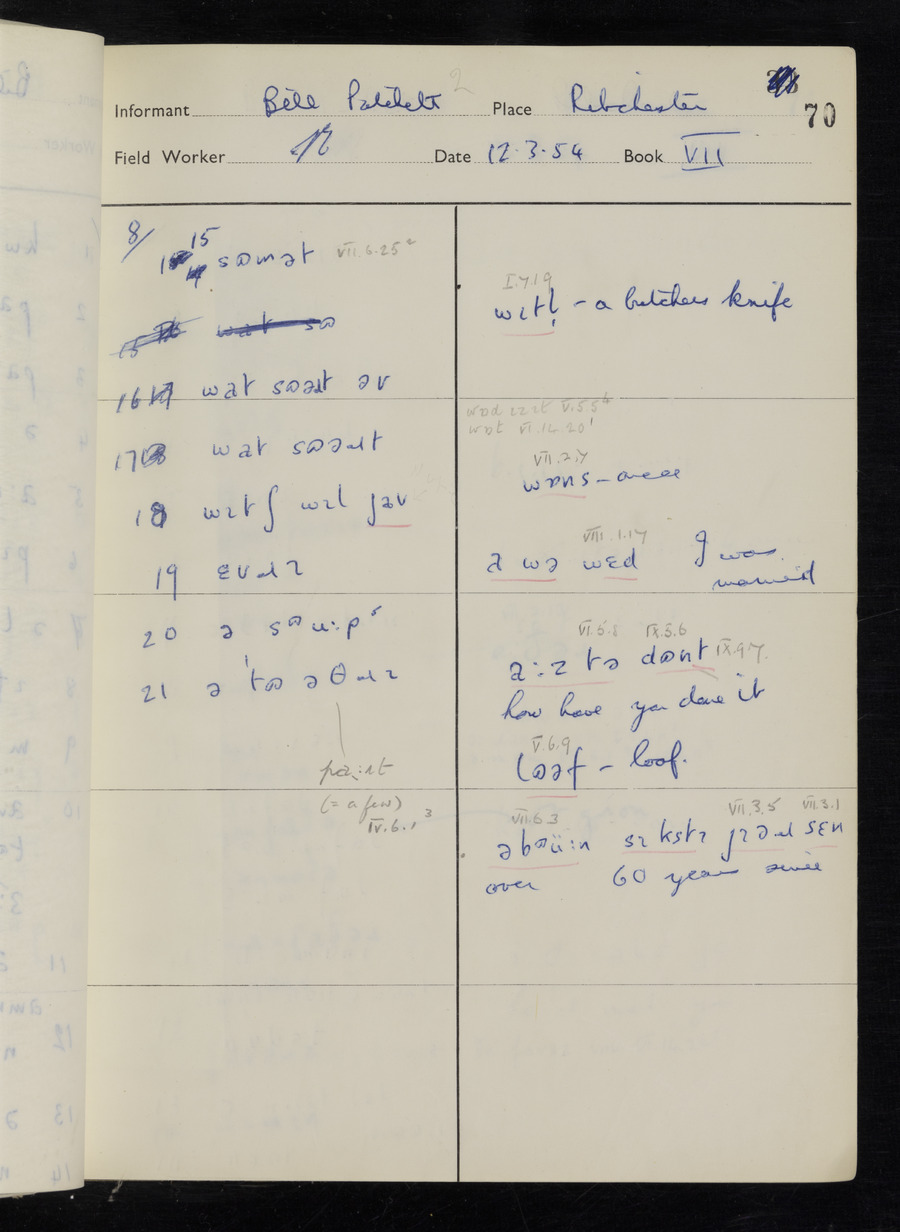 Informant Bill Place Ribchester
70
Field Worker Date 12.3.54 Book VII
8/
15 sɷmət VII.6.25²
16 wat sɷəɹt əv
17 wat sɷəɹt
18 wɪtʃ wɪl jəv
19 ɛvəɹɪ
20 ə sɷu:p
21 ə 'tɷ əθəɹɪ
(= a few)
IV.6.1³
I.7.19
wɪtl̩ - a butchers knife
V.5.5⁴
wɒt VI.14.20¹
VII.2.7
wɒns - once
VIII.1.17
a wə wɛd I was
married
VI.5.8 IX.5.6
a:z tə dɷnt IX.9.7
how have you done it
V.6.9
lɷəf - loaf.
VII.6.3 VII.3.5 VII.3.1
əbɷü:n sɪkstɪ jɪəɹ sɛn
over 60 years since